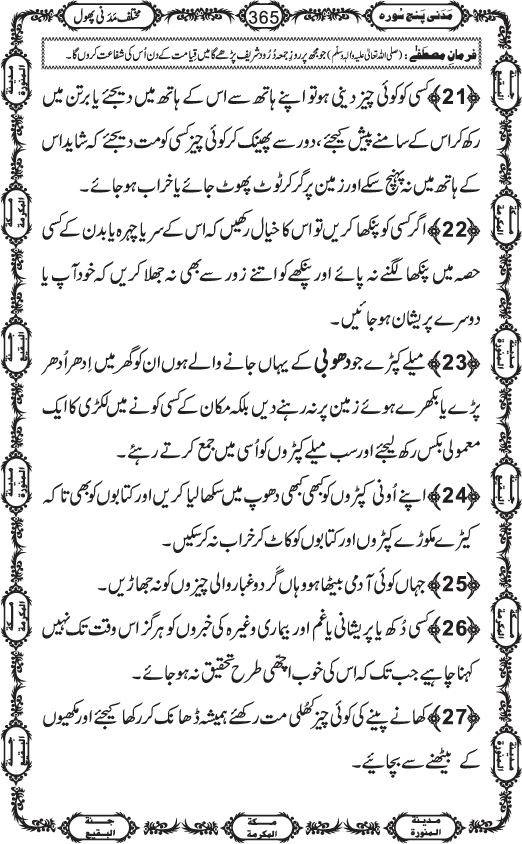 مَدَنی پنج سُورہ
365
مختلف مَدَنی پھول
فرمانِ مصطَفٰے: (صلی اللہ تعالیٰ علیہ واٰلہٖ وسلّم) جو مجھ پر روزِ جمعہ دُرُود شریف پڑھے گا میں قیامت کے دن اُس کی شفاعت کروں گا۔
﴿21﴾ کسی کو کوئی چیز دینی ہو تو اپنے ہاتھ سے اس کے ہاتھ میں دیجئے یا برتن میں
رکھ کر اس کے سامنے پیش کیجئے، دور سے پھینک کر کوئی چیز کسی کو مت دیجئے کہ شاید اس
کے ہاتھ میں نہ پہنچ سکے اور زمین پر گر کر ٹوٹ پھوٹ جائے یا خراب ہو جائے۔
﴿22﴾ اگر کسی کو پنکھا کریں تو اس کا خیال رکھیں کہ اس کے سر یا چہرہ یا بدن کے کسی
حصہ میں پنکھا لگنے نہ پائے اور پنکھے کو اتنے زور سے بھی نہ جھلا کریں کہ خود آپ یا
دوسرے پریشان ہو جائیں۔
﴿23﴾ میلے کپڑے جو دھوبی کے یہاں جانے والے ہوں ان کو گھر میں اِدھر اُدھر
پڑے یا بکھرے ہوئے زمین پر نہ رہنے دیں بلکہ مکان کے کسی کونے میں لکڑی کا ایک
معمولی بکس رکھ لیجئے اور سب میلے کپڑوں کو اُسی میں جمع کرتے رہئے۔
﴿24﴾ اپنے اُونی کپڑوں کو کبھی کبھی دھوپ میں سکھا لیا کریں اور کتابوں کو بھی تاکہ
کیڑے مکوڑے کپڑوں اور کتابوں کو کاٹ کر خراب نہ کرسکیں۔
﴿25﴾ جہاں کوئی آدمی بیٹھا ہو وہاں گرد و غبار والی چیزوں کو نہ جھاڑیں۔
﴿26﴾ کسی دُکھ یا پریشانی یا غم اور بیماری وغیرہ کی خبروں کو ہرگز اس وقت تک نہیں
کہنا چاہیے جب تک کہ اس کی خوب اچّھی طرح تحقیق نہ ہو جائے۔
﴿27﴾ کھانے پینے کی کوئی چیز کُھلی مت رکھئے ہمیشہ ڈھانک کر رکھا کیجئے اور مکھیوں
کے بیٹھنے سے بچائیے۔
مدینۃ المنورۃ
مکۃ المکرمۃ
جنۃ البقیع
مدینۃ المنورۃ
مکۃ المکرمۃ
جنۃ البقیع
جنۃ البقیع
مکۃ المکرمۃ
مدینۃ المنورۃ
جنۃ البقیع
مکۃ المکرمۃ
مدینۃ المنورۃ
جنۃ البقیع
مکۃ المکرمۃ
مدینۃ المنورۃ